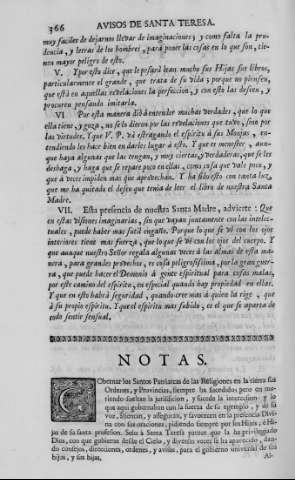 366 AVISOS DE SANTA TERESA.
muy faciles de dejarnos llevar de imaginaciones; y como falta la pru-
dencia, y letras de los hombres, para poner las cosas en lo que son, tie-
nen mayor peligro de esto.
V. Y por esto dice, que le pesará lean mucho sus Hijas sus libros,
particularmente el grande, que trata de su vida; porque no piensen,
que está en aquellas revelaciones la perfeccion, y con esto las deseen, y
procuren pensando imitarla.
VI. Por esta manera dió à entender muchas verdades, que lo que
ella tiene, y goza, no se lo dieron por las revelaciones que tuvo, sino por
las virtudes. Y que V. P. và estragando el espiritu à sus Monjas, en-
tendiendo les hace bien en darles lugar à esto. Y que es menester, aun-
que haya algunas que las tengan, y muy ciertas, y verdaderas, que se les
deshaga, y haga que se repare poco en ellas, como cosa que vale poco, y
que à veces impiden mas que aprovechan. Y ha sido esto con tanta luz,
que me ha quitado el deseo que tenia de leer el libro de nuestra Santa
Madre.
VII. Esta presencia de nuestra Santa Madre, advierte: Que
en estas visiones imaginarias, sin que vayan juntamente con las intelec-
tuales, puede haber mas sutil engaño. Porque lo que se vé con los ojos
interiores tiene mas fuerza, que lo que se vé con los ojos del cuerpo. Y
que aunque nuestro Señor regala algunas veces à las almas de esta ma-
nera, para grandes provechos, es cosa peligrosissima, por la gran guer-
ra, que puede hacer el Demonio à gente espiritual para cosas malas,
por este camino del espiritu, en especial quando hay propiedad en ellas.
Y que en esto habrá seguridad, quando cree mas à quien la rige, que
à su propio espiritu. Y que el espiritu mas subido, es el que se aparta de
todo sentir sensual.
NOTAS.
Gobernar los Santos Patriarcas de las Religiones en la tierra sus
Ordenes, y Provincias, siempre ha sucedido; pero en mu-
riendo sueltan la jurisdicion, y sucede la intercesion; y lo
que aqui gobernaban con la fuerza de su egemplo, y de su
voz, alientan, y aseguran, y favorecen en la presencia Divi-
na con sus oraciones, pidiendo siempre por sus Hijos è Hi-
jas de su santa profesion. Solo à Santa Teresa parece que la ha privilegiado
Dios, con que gobierne desde el Cielo, y diversas veces se ha aparecido, dan-
do consejos, direcciones, ordenes, y avisos, para el gobierno universal de sus
hijos, y sus hijas.